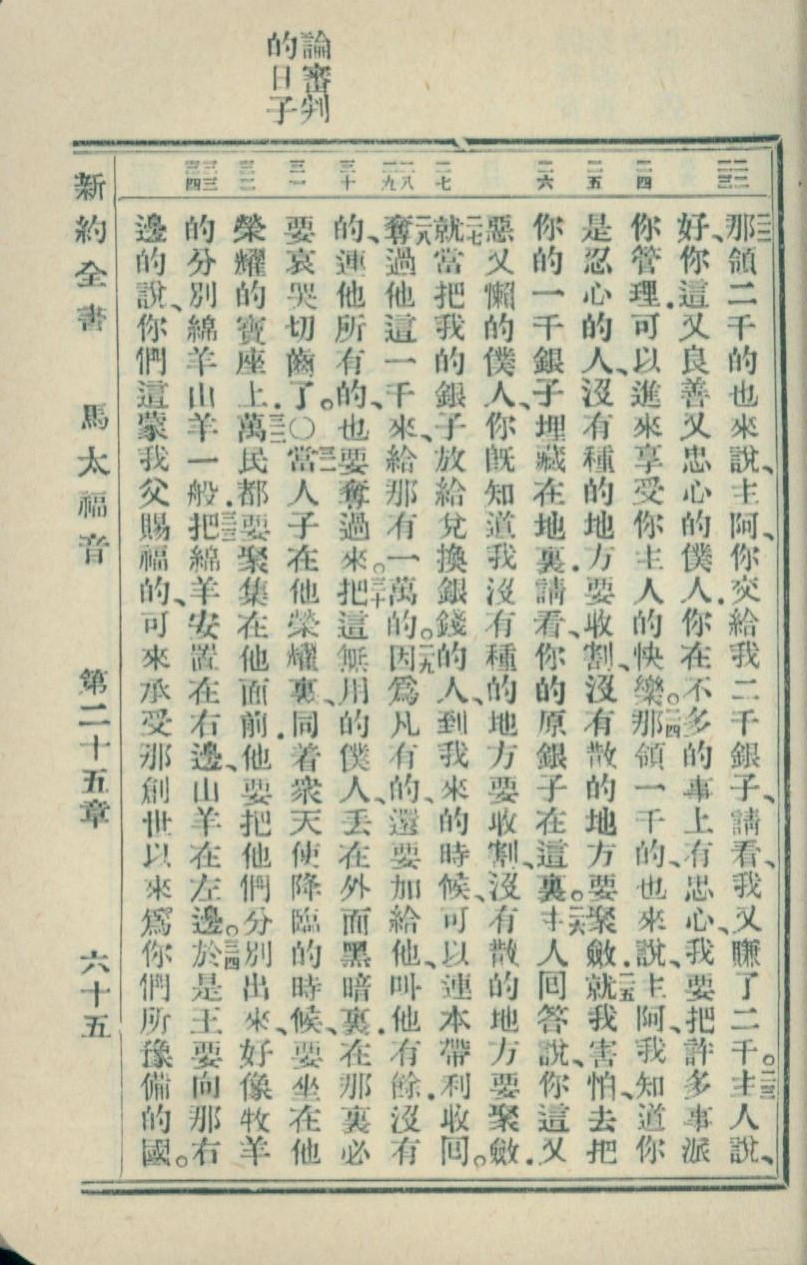 論審判
的日子
二二 二三 二四 二五 二六 二七 二八 二九 三十 三一 三二 三三 三四
二二那領二千的也來說、主阿、你交給我二千銀子、請看、我又賺了二千。二三主人說、
好、你這又良善又忠心的僕人．你在不多的事上有忠心、我要把許多事派
你管理．可以進來享受你主人的快樂。二四那領一千的、也來說、主阿、我知道你
是忍心的人、沒有種的地方要收割、沒有散的地方要聚斂．二五就我害怕、去把
你的一千銀子、埋藏在地裏．請看、你的原銀子在這裏。二六主人回答說、你這又
惡又懶的僕人、你旣知道我沒有種的地方要收割、沒有散的地方要聚斂．
二七就當把我的銀子放給兌換銀錢的人、到我來的時候、可以連本帶利收回。
二八奪過他這一千來、給那有一萬的。二九因爲凡有的、還要加給他、叫他有餘．沒有
的、連他所有的、也要奪過來。三十把這無用的僕人、丟在外面黑暗裏．在那裏必
要哀哭切齒了。〇三一當人子在他榮耀裏、同着衆天使降臨的時候、要坐在他
榮耀的寶座上．三二萬民都要聚集在他面前．他要把他們分別出來、好像牧羊
的分別綿羊山羊一般．三三把綿羊安置在右邊、山羊在左邊。三四於是王要向那右
邊的說、你們這蒙我父賜福的、可來承受那創世以來爲你們所豫備的國。
新約全書 馬太福音 第二十五章 六十五